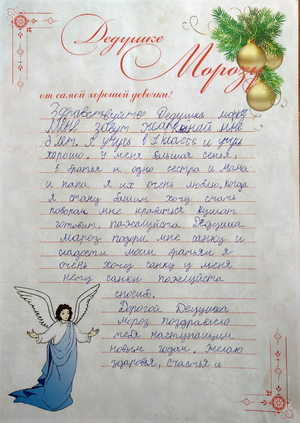 Дедушке
Морозу
от самой хорошей девочки!
Здравствуйте Дедушка мороз
Мне зовут мне
8 лет. я учусь в 2 классе и учусь
хорошо. У меня большая семья.
5 братья и одно сестра и мама
и папа. я их очень люблю. Когда
я стану большим хочу стать
поваром мне нравиться кушат
готовит. пожалуйста Дедушка
Мароз подари мне санку и
сладости моим братьям я
очень хочу санку у меня
нету санки пожалуйста
спосибо.
Дорогой Дедушка
мороз поздравляю
тебя наступающим
новым годом. Желаю
здоровя, счастья и